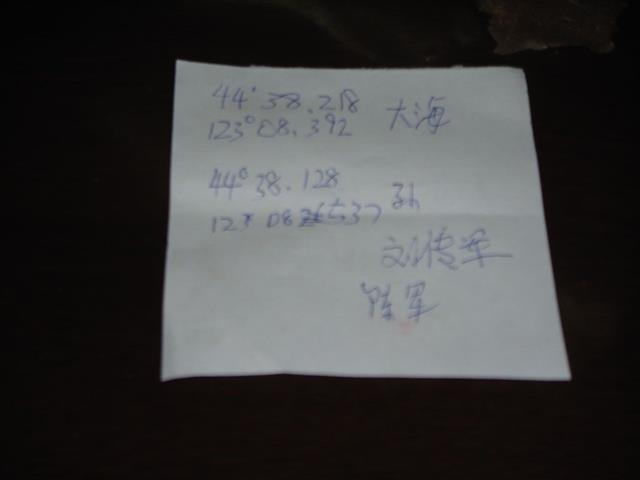 44°38.218 大海
123°08.392
44°38.128 孙
123°08
刘传军
陈军